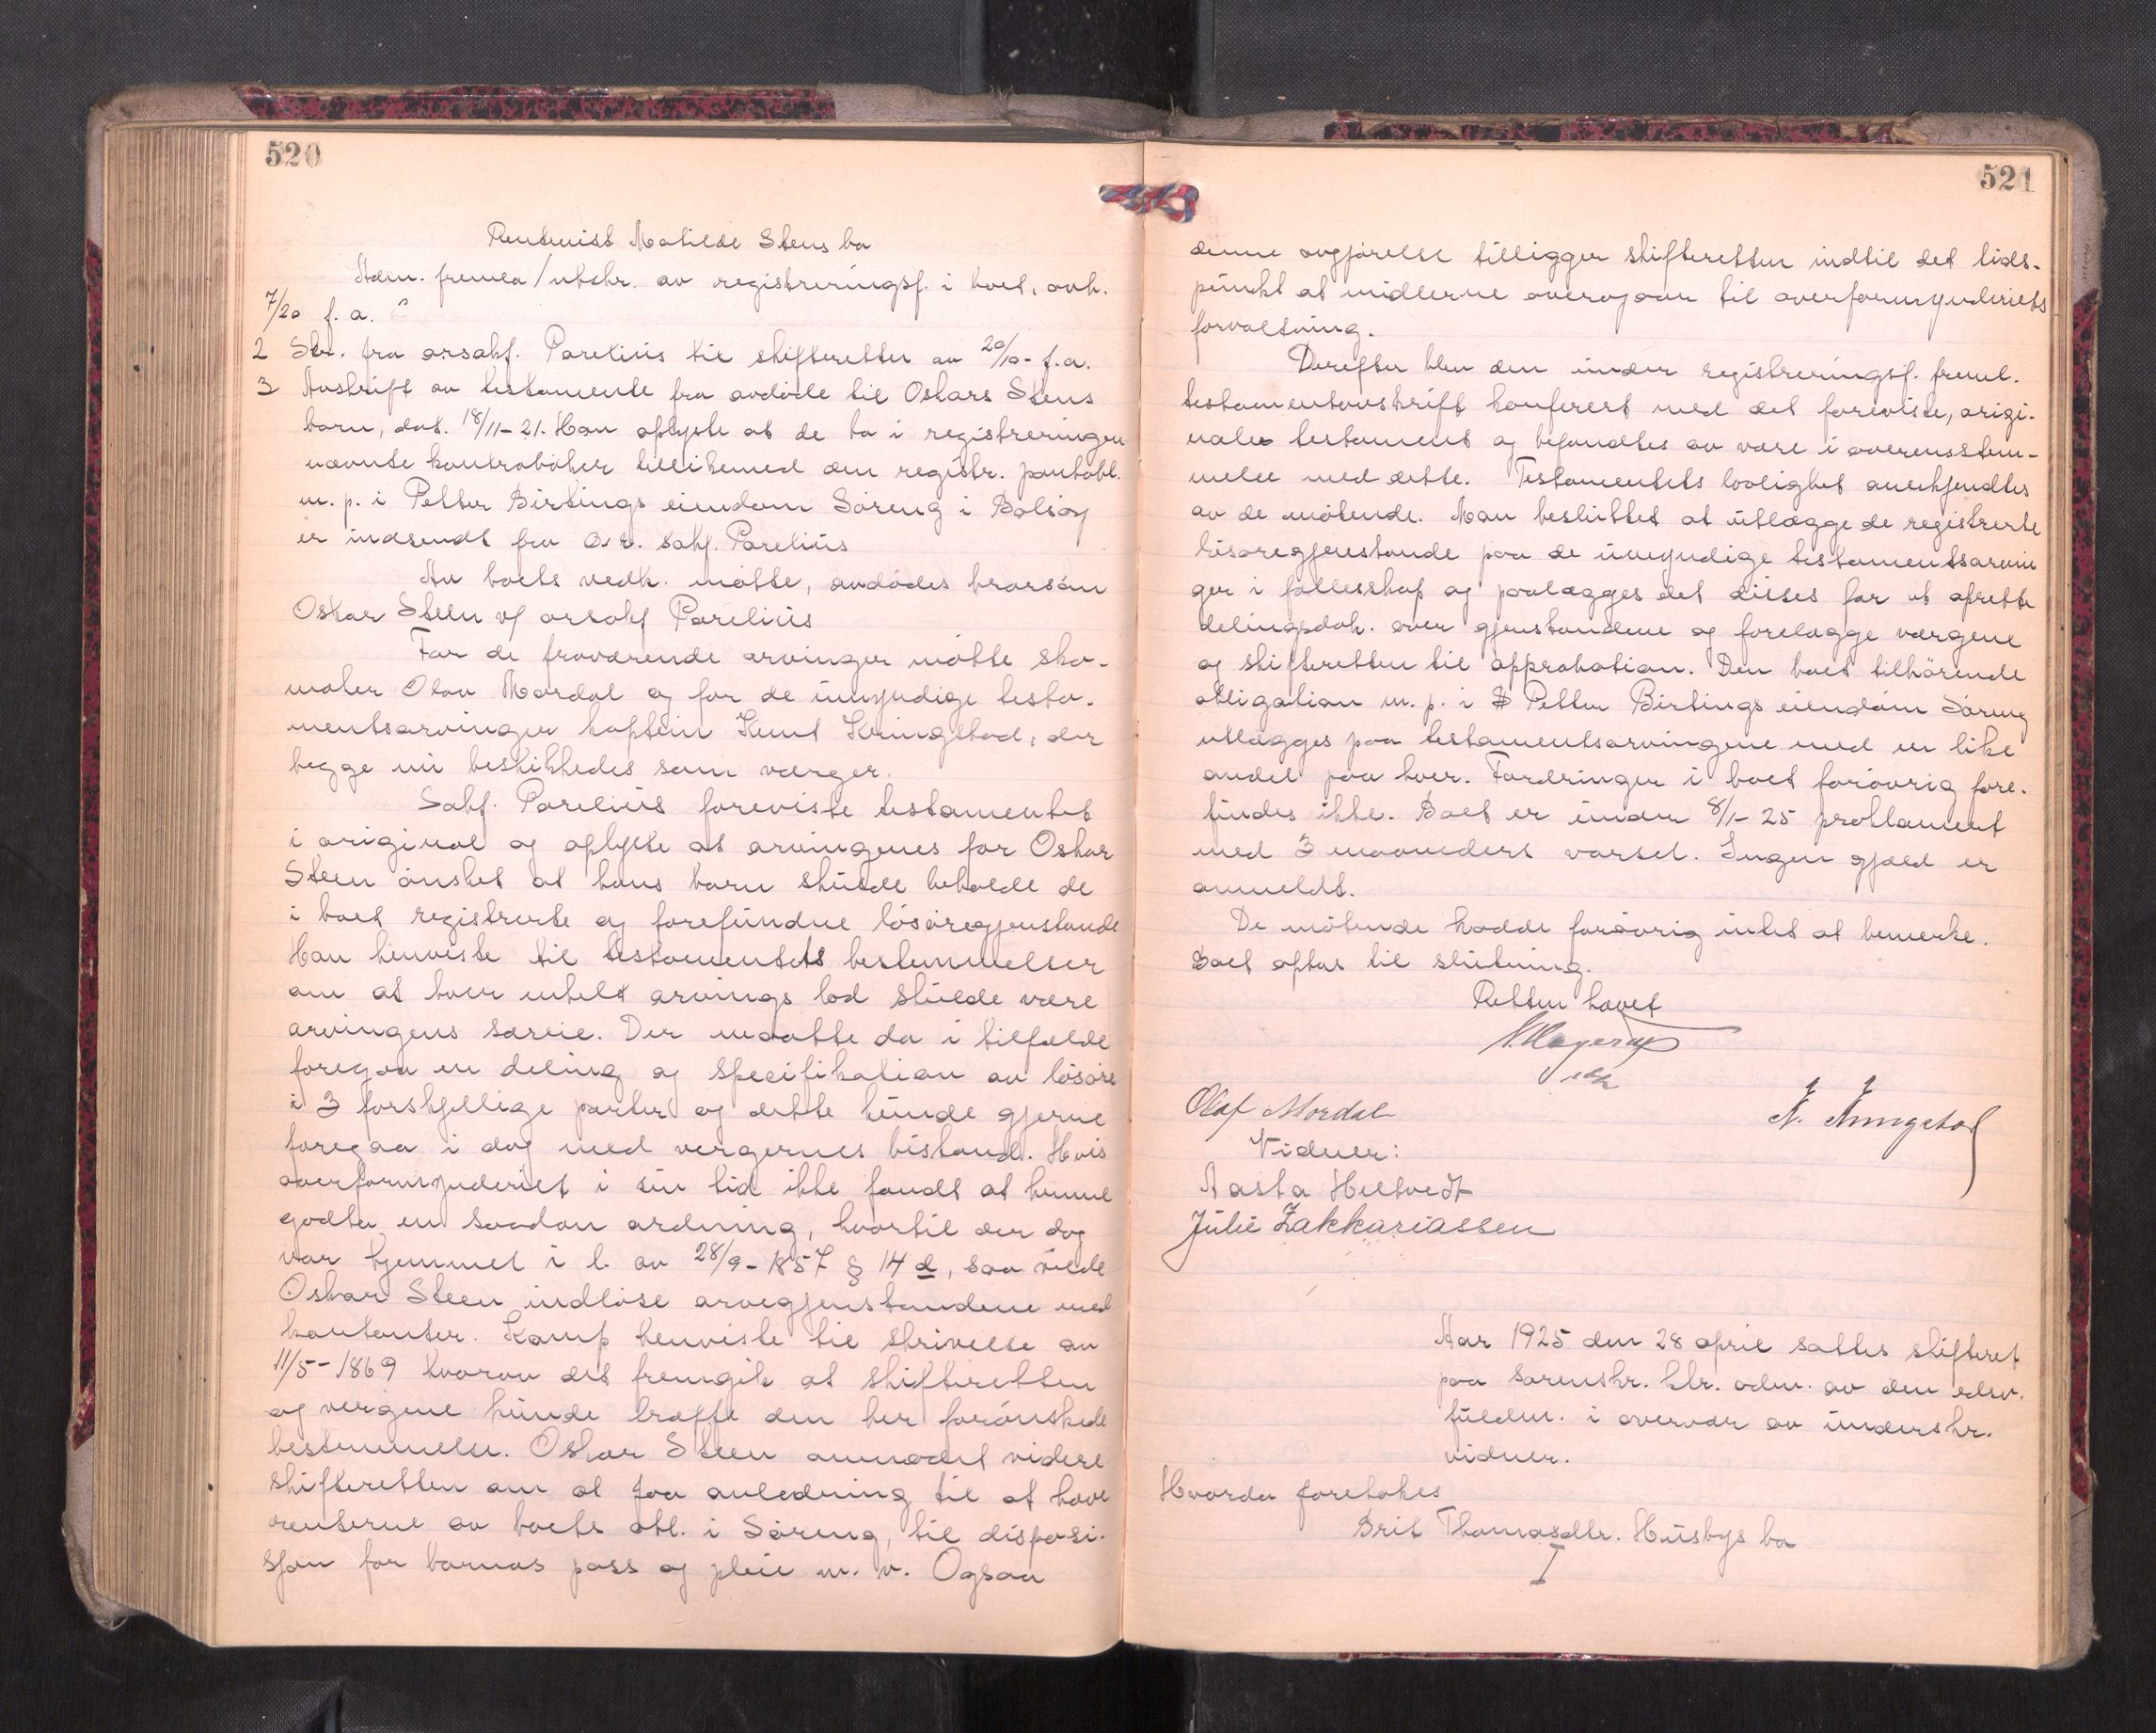 520
Rentenist Matilde Stens bo
Adm. fremla / utskr. av registreringsf. i boet, avh.
7/20 f. a.
2 Skr. fra orsakf. Parelius til skifteretten av 20/10 - f.a.
3 Avskrift av testamente fra avdöde til Oskars Stens
barn, dat. 18/11-21. Han oplyste at de to i registreringen
nævnte kontraböker tillikemed den registr. pantobl.
m. p. i Petter Birtings eiendom Söreng i Bolsöy
er indsendt fra o.r. sakf. Parelius
Av boets vedk. mötte, avdödes brorsön
Oskar Steen v/ orsakf Parelius
For de fraværende arvinger mötte sko-
maker Olav Mordal og for de umyndige testa-
mentsarvinger kaptein Knut Kringstad, der
begge nu beskikkedes som værger.
Sakf. Parelius foreviste testamentet
i original og oplyste at arvingenes far Oskar
Steen önsket at hans barn skulde beholde de
i boet registrerte og forefundne lösöregjenstande
Han henviste til testamentets bestemmelser
om at hver enkelt arvings lod skulde være
arvingens særeie. Der maatte da i tilfælde
foregaa en deling og specifikation av lösöre
i 3 forskjellige parter og dette kunde gjerne
foregaa i dag med vergernes bistand. Hvis
overformynderiet i sin tid ikke fandt at kunne
godta en saadan ordning, hvortil der dog
var hjemmel i l. av 28/9-1857 § 14 d, saa vilde
Oskar Steen indlöse arvegjenstandene med
kontanter. Komp henviste til skrivelse av
11/5-1869 hvorav det fremgik at skifteretten
og vergene kunde træffe den her forönskede
bestemmelse. Oskar Steen anmodet videre
skifteretten om at faa anledning til at have
renterne av boets obl. i Söreng, til disposi-
sjon for barnas pass og pleie m. v. Ogsaa
521
denne avgjörelse tilligger skifteretten indtil det tids-
punkt at midlerne overgaar til overformynderiets
forvaltning.
Derefter blev den under registreringsf. freml.
testamentavskrift konferert med det foreviste, origi-
nale testament og befandtes av være i overensstem-
melse med dette. Testamentets lovlighet anerkjendtes
av de mötende. Man besluttet at utlægge de registrerte
lösöregjenstande paa de umyndige testamentsarvin
ger i fællesskap og paalægges det disses far at oprette
delingsdok. over gjenstandene og forelægge værgene
og skifteretten til approbation. Den boet tilhörende
obligation m. p. i Petter Birtings eiendom Söreng
utlægges paa testamentsarvingene med en like
andel paa hver. Fordringer i boet forövrig fore-
findes ikke. Boet er under 8/1-25 proklamert
med 3 maaneders varsel. Ingen gjæld er
anmeldt.
De mötende hadde forövrig intet at bemerke.
Boet optas til slutning.
Retten hævet
Olaf Mordal
Vidner:
Aasta Heltvedt
Julie Zakkariassen
Aar 1925 den 28 april sattes skifteret
paa sorenskr. ktr. adm. av den edsv.
fuldm. i overvær av underskr.
vidner.
Hvorda foretokes
Brit Thomasdtr. Husbys bo
I